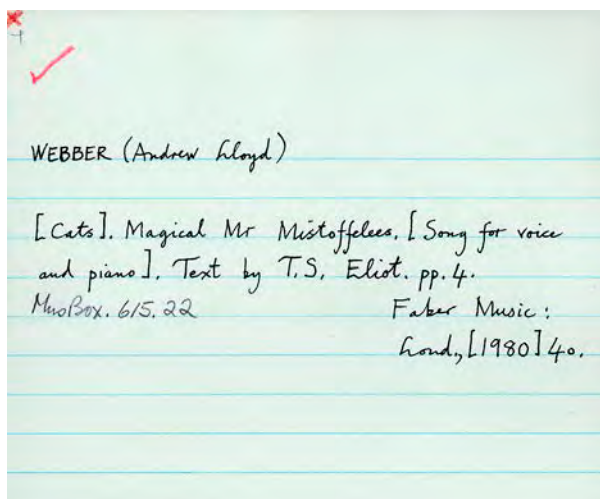 WEBBER (Andrew Lloyd)
[Cats]. Magical Mr Mistoffelees. [Song for voice
and piano]. Text by T.S. Eliot. pp. 4.
MusBox. 615. 22 Faber Music:
Lond., [1980] 4o.